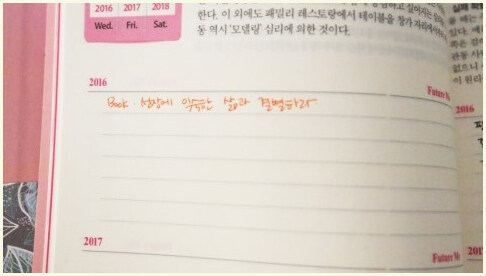 2016 2017 2018
Wed. Fri. Sat.
한다. 이 외에도 패밀리 레스토랑에서 테이블을 창가 자리
동 역시 '모델링' 심리에 의한 것이다.
2016
Future
Book. 성장에 익숙한 삶과 결별하라
2017
Future
있다.
없으니
이 원리
2016